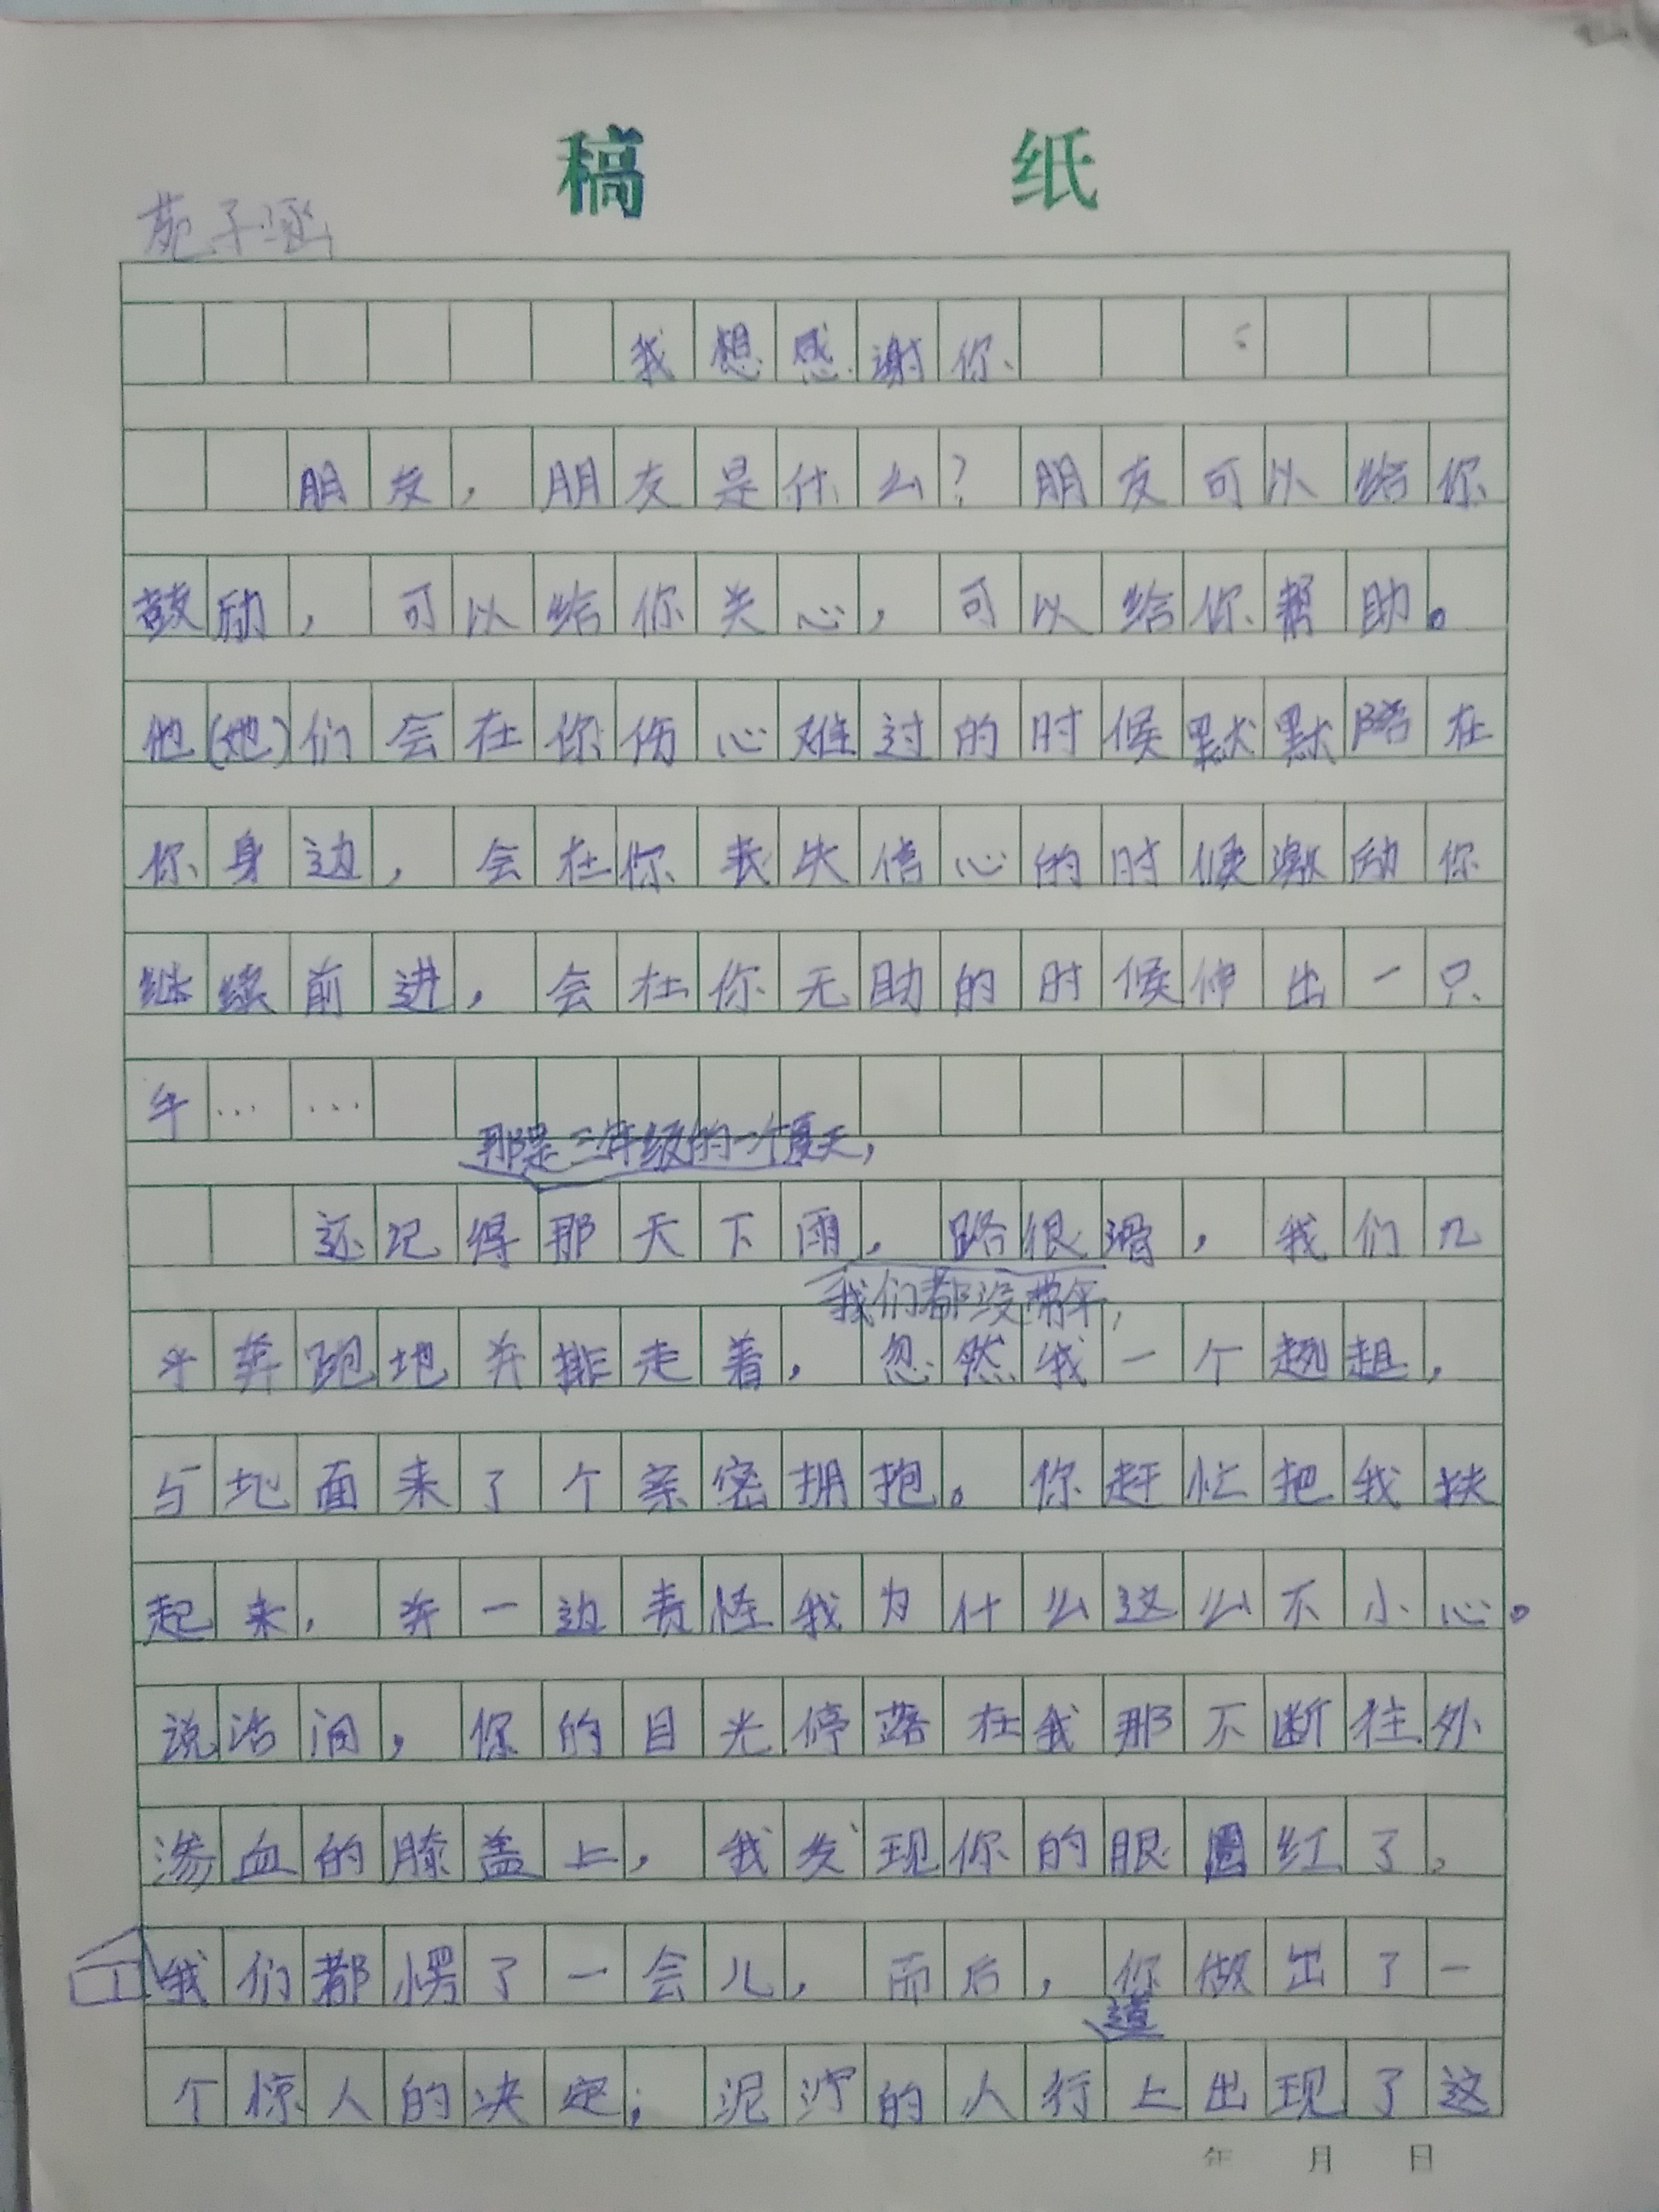 稿 纸
苑子涵
我想感谢你
朋友，朋友是什么？朋友可以给你
鼓励，可以给你关心，可以给你帮助。
他(她)们会在你伤心难过的时候默默陪在
你身边，会在你丧失信心的时候激励你
继续前进，会在你无助的时候伸出一只
手……
那是三年级的一个夏天，
还记得那天下雨，路很滑，我们几
我们都没带伞，
乎奔跑地并排走着，忽然我一个趔趄，
与地面来了个亲密拥抱。你赶忙把我扶
起来，并一边责怪我为什么这么不小心。
说话间，你的目光停落在我那不断往外
渗血的膝盖上，我发现你的眼圈红了，
我们都愣了一会儿，而后，你做出了一
道
个惊人的决定；泥泞的人行上出现了这
年 月 日